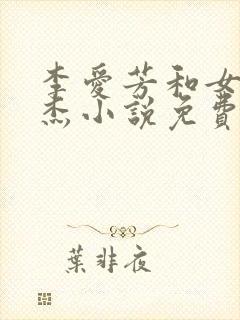 李愛芳和女
杰小說免費
葉非夜